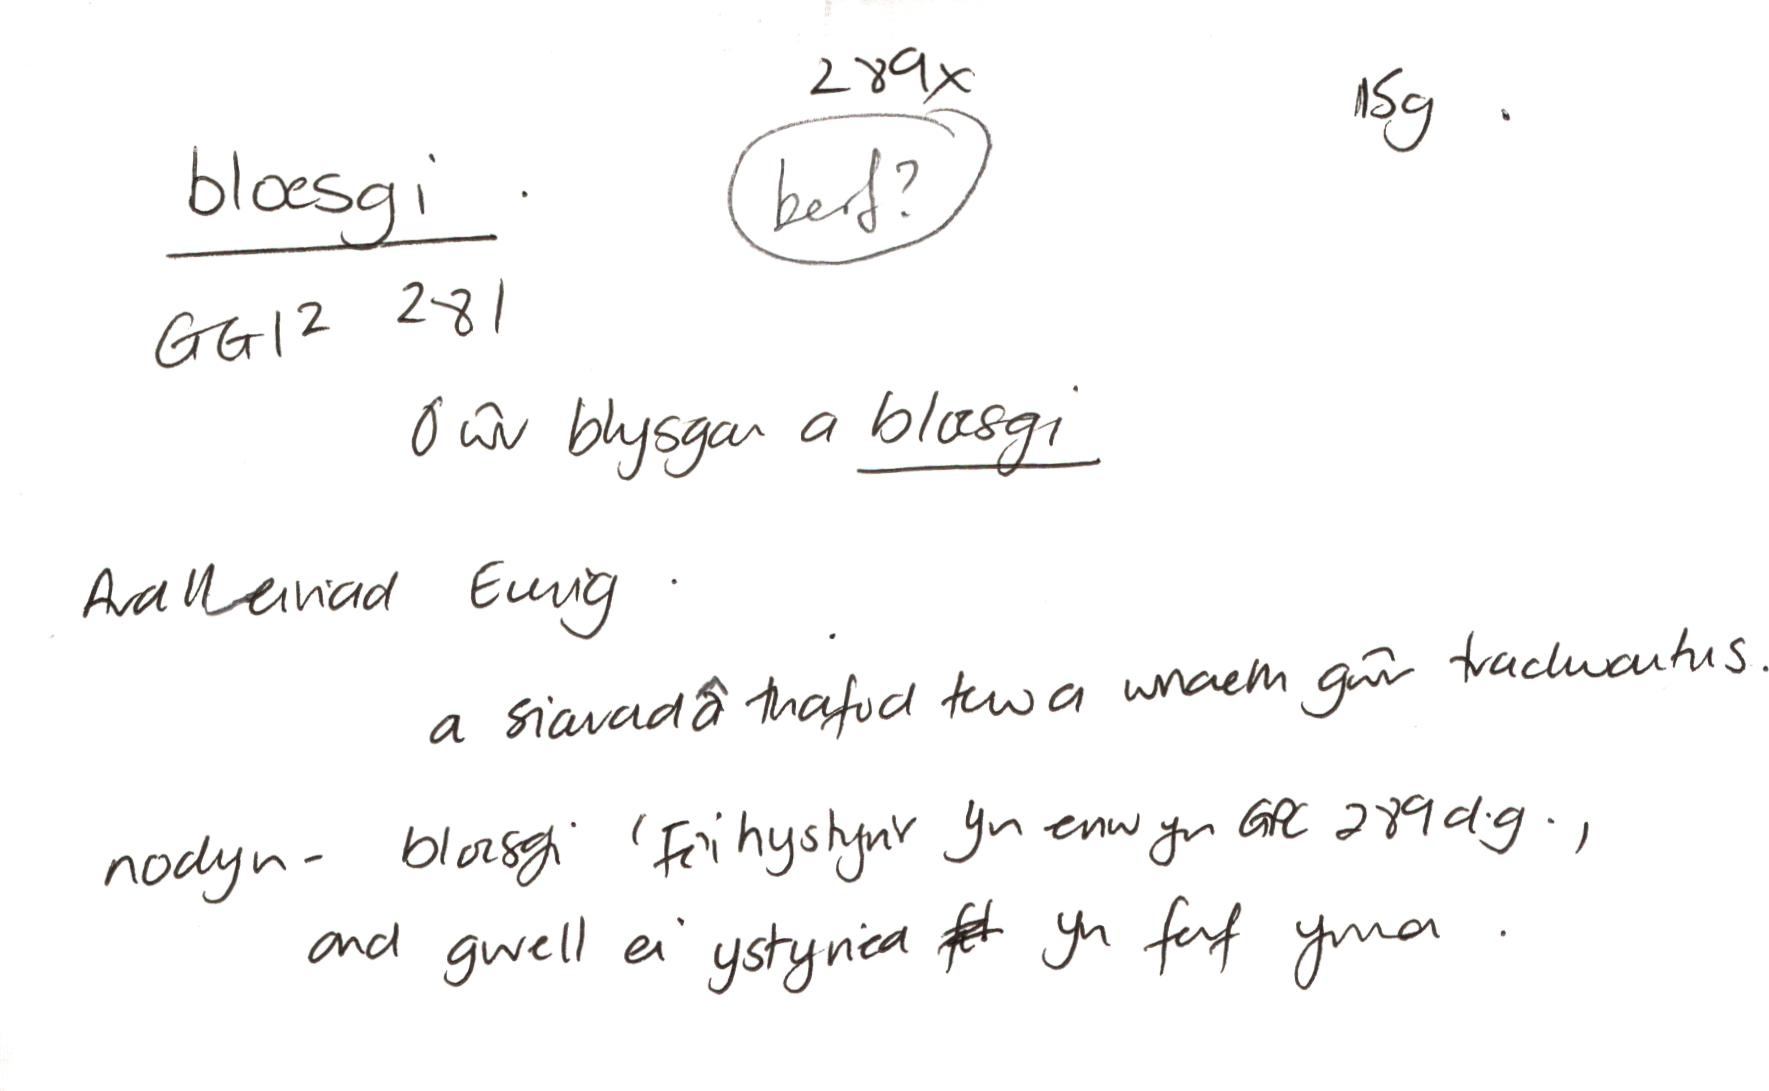 289x
15g.
bloesgi.
berf?
GGl² 281
O ŵr blysgar a bloesgi
Aralleiriad Eurig.
a siarad â thafod tew a wnaeth gŵr trachwantus.
nodyn - bloesgi 'Fe'i hystyrir yn enw yn GPC 289 d.g.,
ond gwell ei ystyried yn ferf yma.